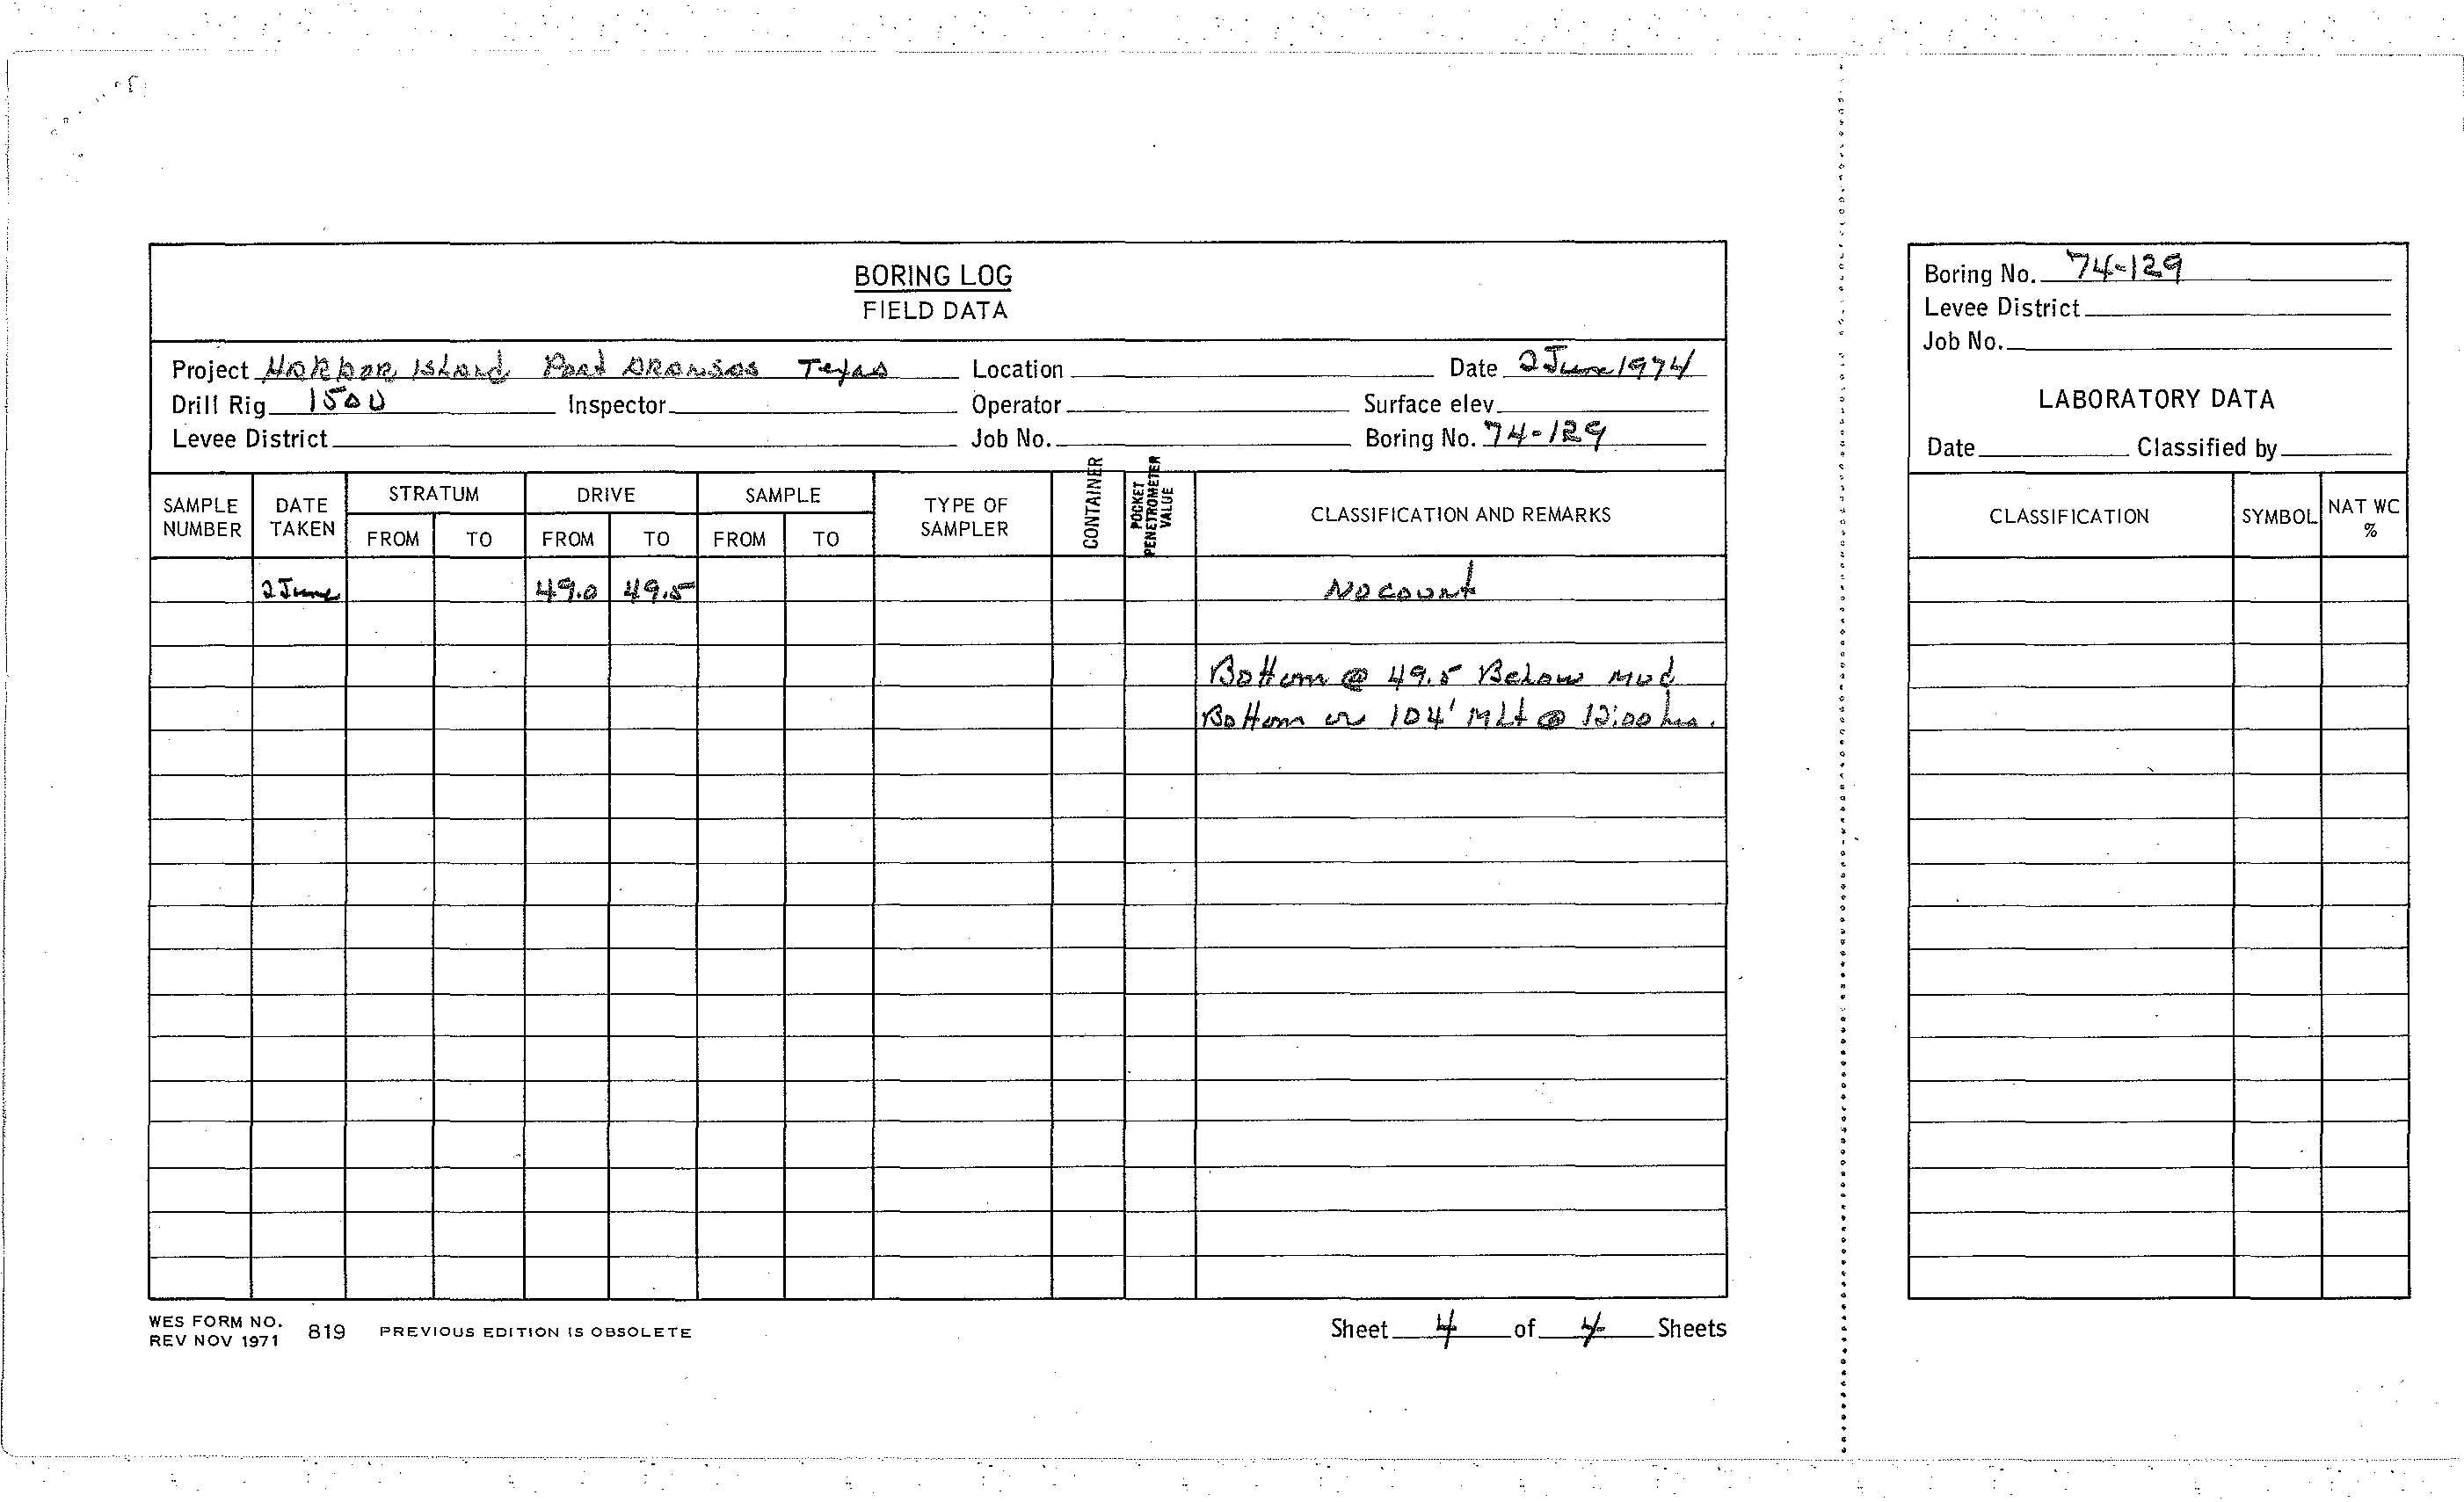 BORING LOG
FIELD DATA
Project Harbor Island Port Aransas Texas Location Date 2 June 1974
Drill Rig 1500 Inspector Operator Surface elev.
Levee District Job No. Boring No. 74-129
SAMPLE NUMBER DATE TAKEN STRATUM FROM TO DRIVE FROM TO SAMPLE FROM TO TYPE OF SAMPLER CONTAINER POCKET PENETROMETER VALUE CLASSIFICATION AND REMARKS
2 June 49.0 49.5 No count
Bottom @ 49.5 Below Mud
Bottom or 104' MLt @ 12:00 hrs.
WES FORM NO. 819 PREVIOUS EDITION IS OBSOLETE
REV NOV 1971
Sheet 4 of 4 Sheets
Boring No. 74-129
Levee District
Job No.
LABORATORY DATA
Date Classified by
CLASSIFICATION SYMBOL NAT WC %